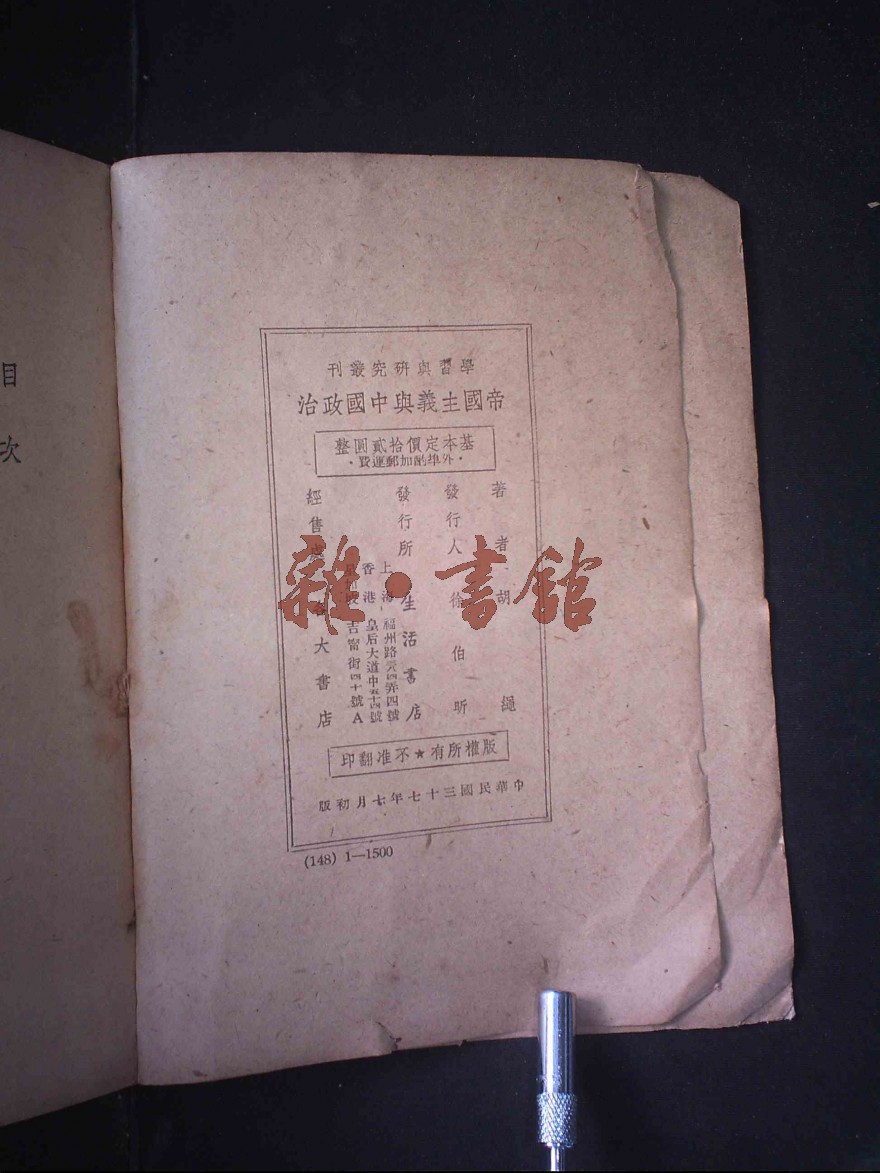 學習與研究叢刊
帝國主義與中國政治
基本定價拾貳圓整
·外埠酌加郵運費·
著者 胡繩
發行人 徐伯昕
發行所 生活書店
上海 福州路
香港 皇后大道中五十四號
吉甯街四十號A
經售處 各大書店
版權所有★不准翻印
中華民國三十七年七月初版
(148) 1—1500
目次
雜·書館